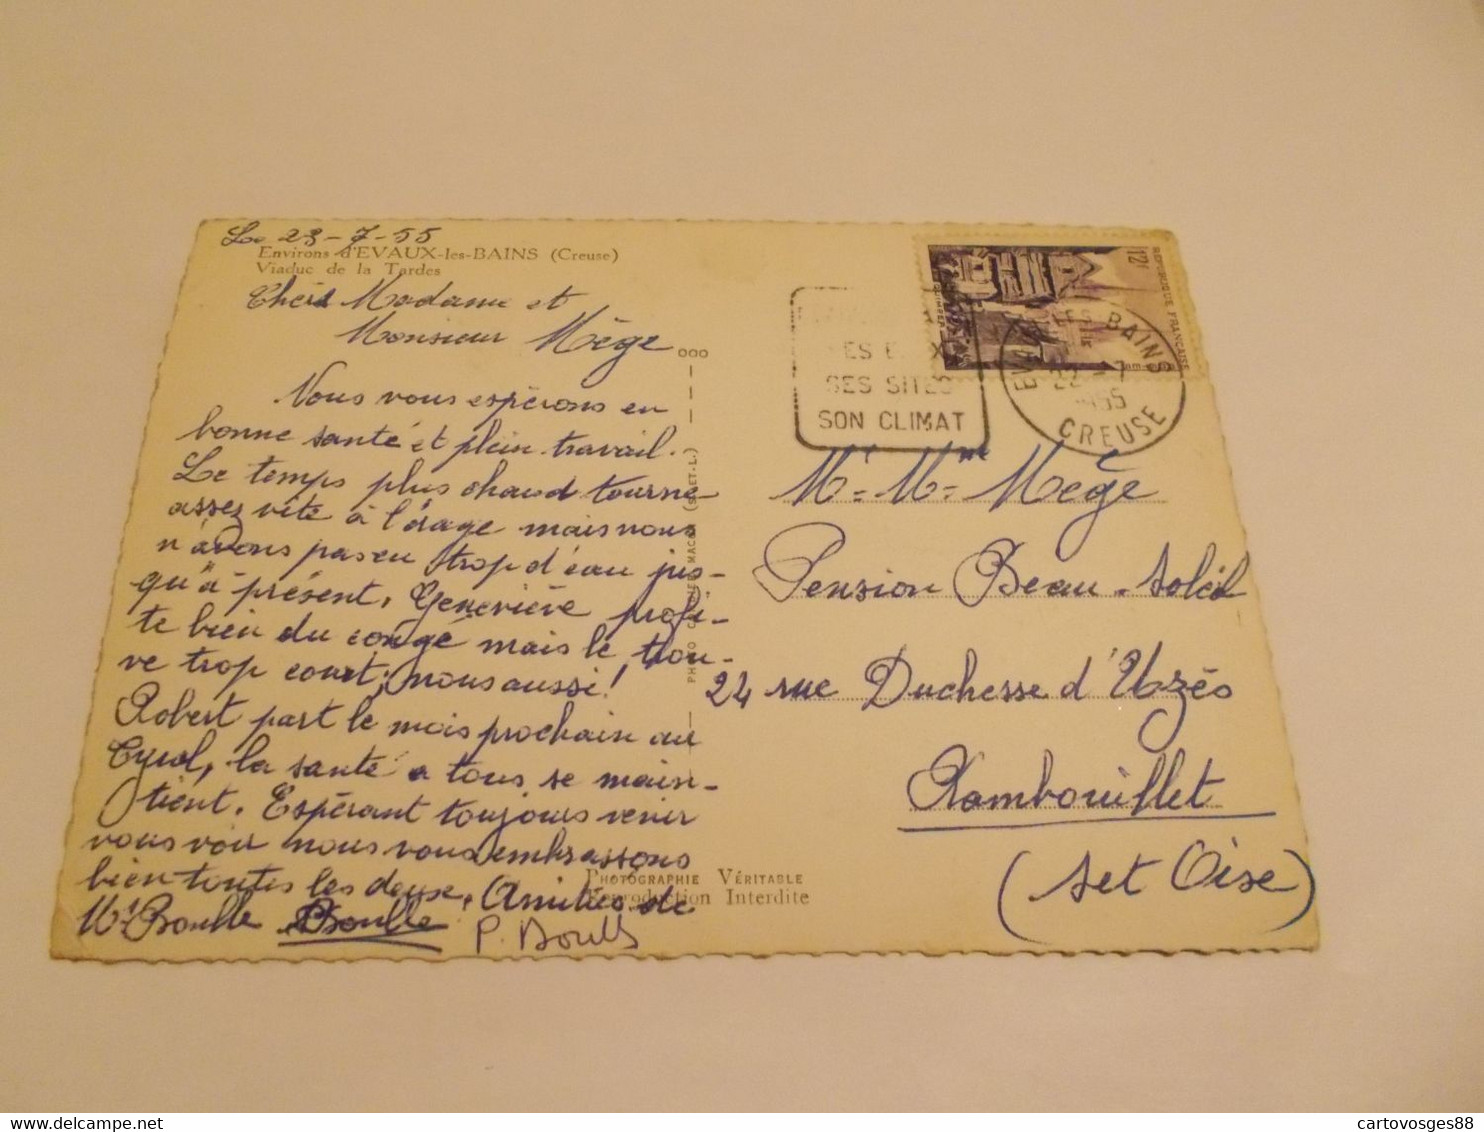 Le 23-7-55
Environs d'EVAUX-les-BAINS (Creuse)
Viaduc de la Tardes
Chers Madame et
Monsieur Mège
Nous vous espérons en
bonne santé et plein travail.
Le temps plus chaud tourne
assez vite à l'orage mais nous
n'avons pas eu trop d'eau jus-
qu'à présent, Geneviève profi-
te bien du congé mais le trou-
ve trop court; nous aussi!
Robert part le mois prochain au
Tyrol, la santé a tous se main-
tient. Espérant toujours venir
vous voir nous vous embrassons
bien toutes les deux, Amitiés de
Mr Boulle Boulle P. Boulle
PHOTOGRAPHIE VÉRITABLE
Reproduction Interdite
PHOTO MACON (S.-ET-L.)
SES SITES
SON CLIMAT
EVAUX LES BAINS
22 -7
1955
CREUSE
12f
REPUBLIQUE FRANÇAISE
QUIMPER
Mr - Mme - Mège
Pension Beau-Soleil
24 rue Duchesse d'Uzès
Rambouillet
(Set Oise)
cartovosges88